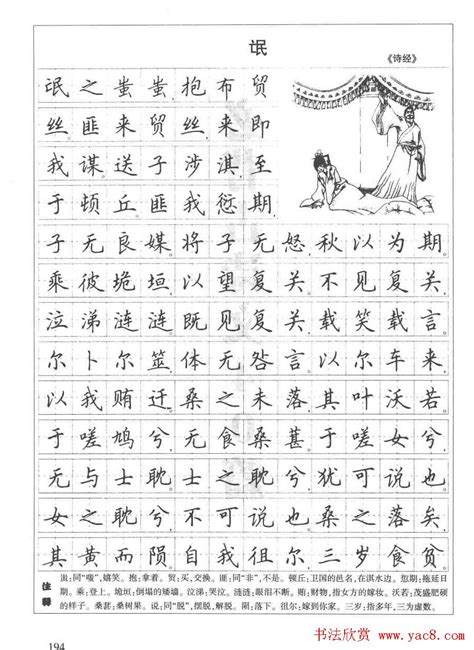 氓
《诗经》
氓之蚩蚩,抱布贸
丝。匪来贸丝,来即
我谋。送子涉淇,至
于顿丘。匪我愆期,
子无良媒。将子无怒,秋以为期。
乘彼垝垣,以望复关。不见复关,
泣涕涟涟。既见复关,载笑载言。
尔卜尔筮,体无咎言。以尔车来,
以我贿迁。桑之未落,其叶沃若。
于嗟鸠兮,无食桑葚!于嗟女兮,
无与士耽。士之耽兮,犹可说也。
女之耽兮,不可说也。桑之落矣,
其黄而陨。自我徂尔,三岁食贫。
注释
蚩:同“嗤”,嬉笑。抱:拿着。贸:买,交换。匪:同“非”,不是。顿丘:卫国的邑名,在淇水边。愆期:拖延日
期。乘:登上。垝垣:倒塌的矮墙。泣涕:哭泣。涟涟:眼泪不断。贿:财物,指女方的嫁妆。沃若:茂盛肥硕
的样子。桑葚:桑树果。说:同“脱”,摆脱,解脱。陨:落下。徂尔:嫁到你家。三岁:指多年,三为虚数。
194
书法欣赏:www.yac8.com